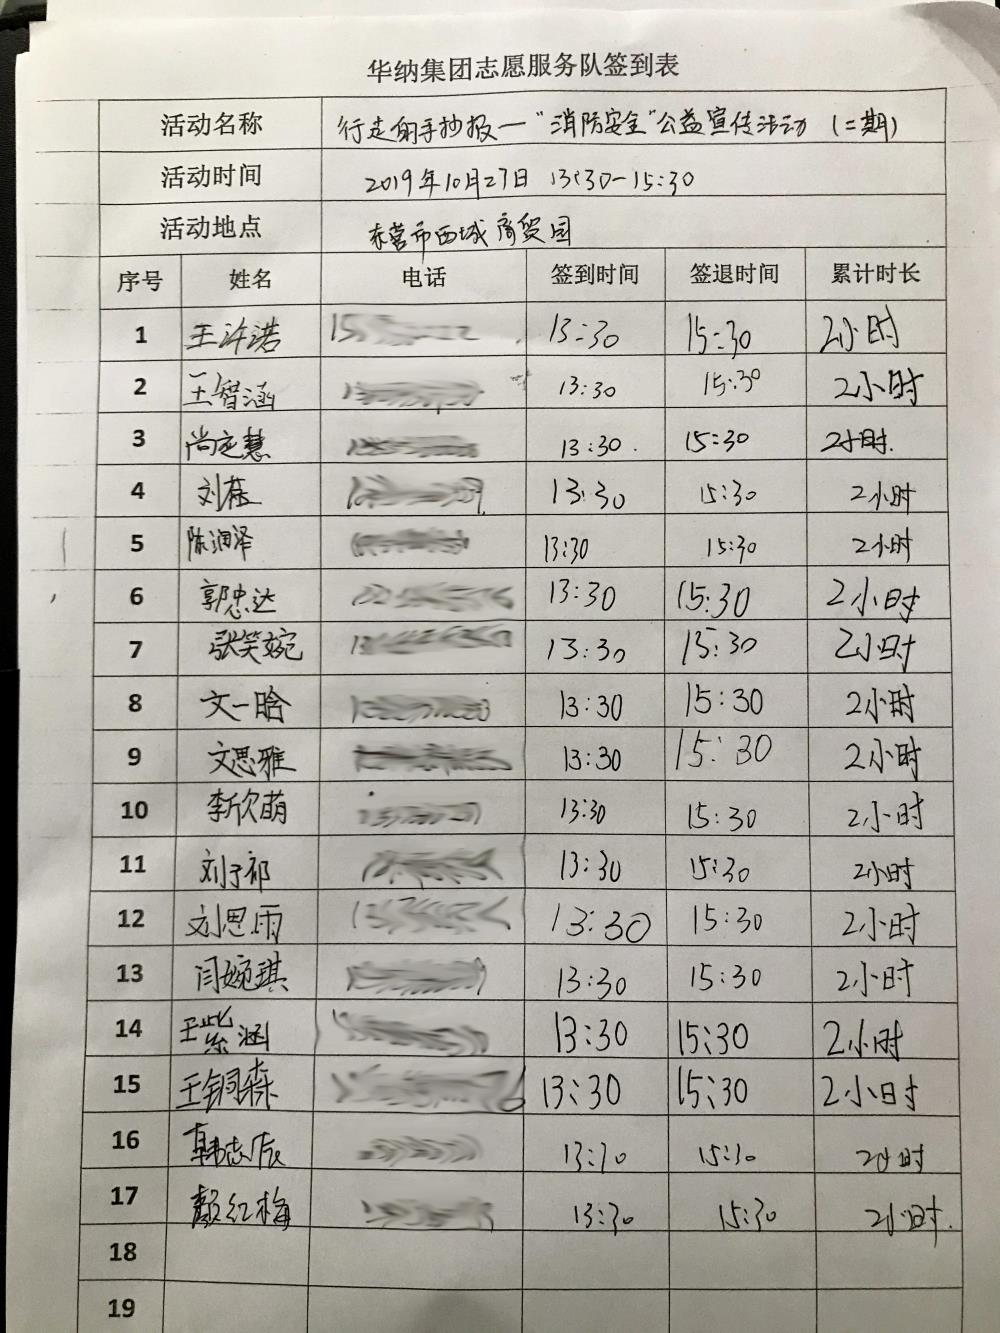 华纳集团志愿服务队签到表
活动名称 行走的手抄报—"消防安全"公益宣传活动(二期)
活动时间 2019年10月27日 13:30-15:30
活动地点 东营市西城商贸园
序号 姓名 电话 签到时间 签退时间 累计时长
1 王许诺 13:30 15:30 2小时
2 王智涵 13:30 15:30 2小时
3 尚延慧 13:30 15:30 2小时.
4 刘薇 13:30 15:30 2小时
5 陈润泽 13:30 15:30 2小时
6 郭忠达 13:30 15:30 2小时
7 张笑婉 13:30 15:30 2小时
8 文一晗 13:30 15:30 2小时
9 文思雅 13:30 15:30 2小时
10 李欣萌 13:30 15:30 2小时
11 刘子祁 13:30 15:30 2小时
12 刘思雨 13:30 15:30 2小时
13 闫婉琪 13:30 15:30 2小时
14 王紫涵 13:30 15:30 2小时
15 王钶森 13:30 15:30 2小时
16 韩志辰 13:30 15:30 2小时
17 颜红梅 13:30 15:30 2小时.
18
19